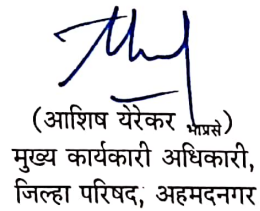 (आशिष येरेकर भाप्रसे)
मुख्य कार्यकारी अधिकारी,
जिल्हा परिषद, अहमदनगर